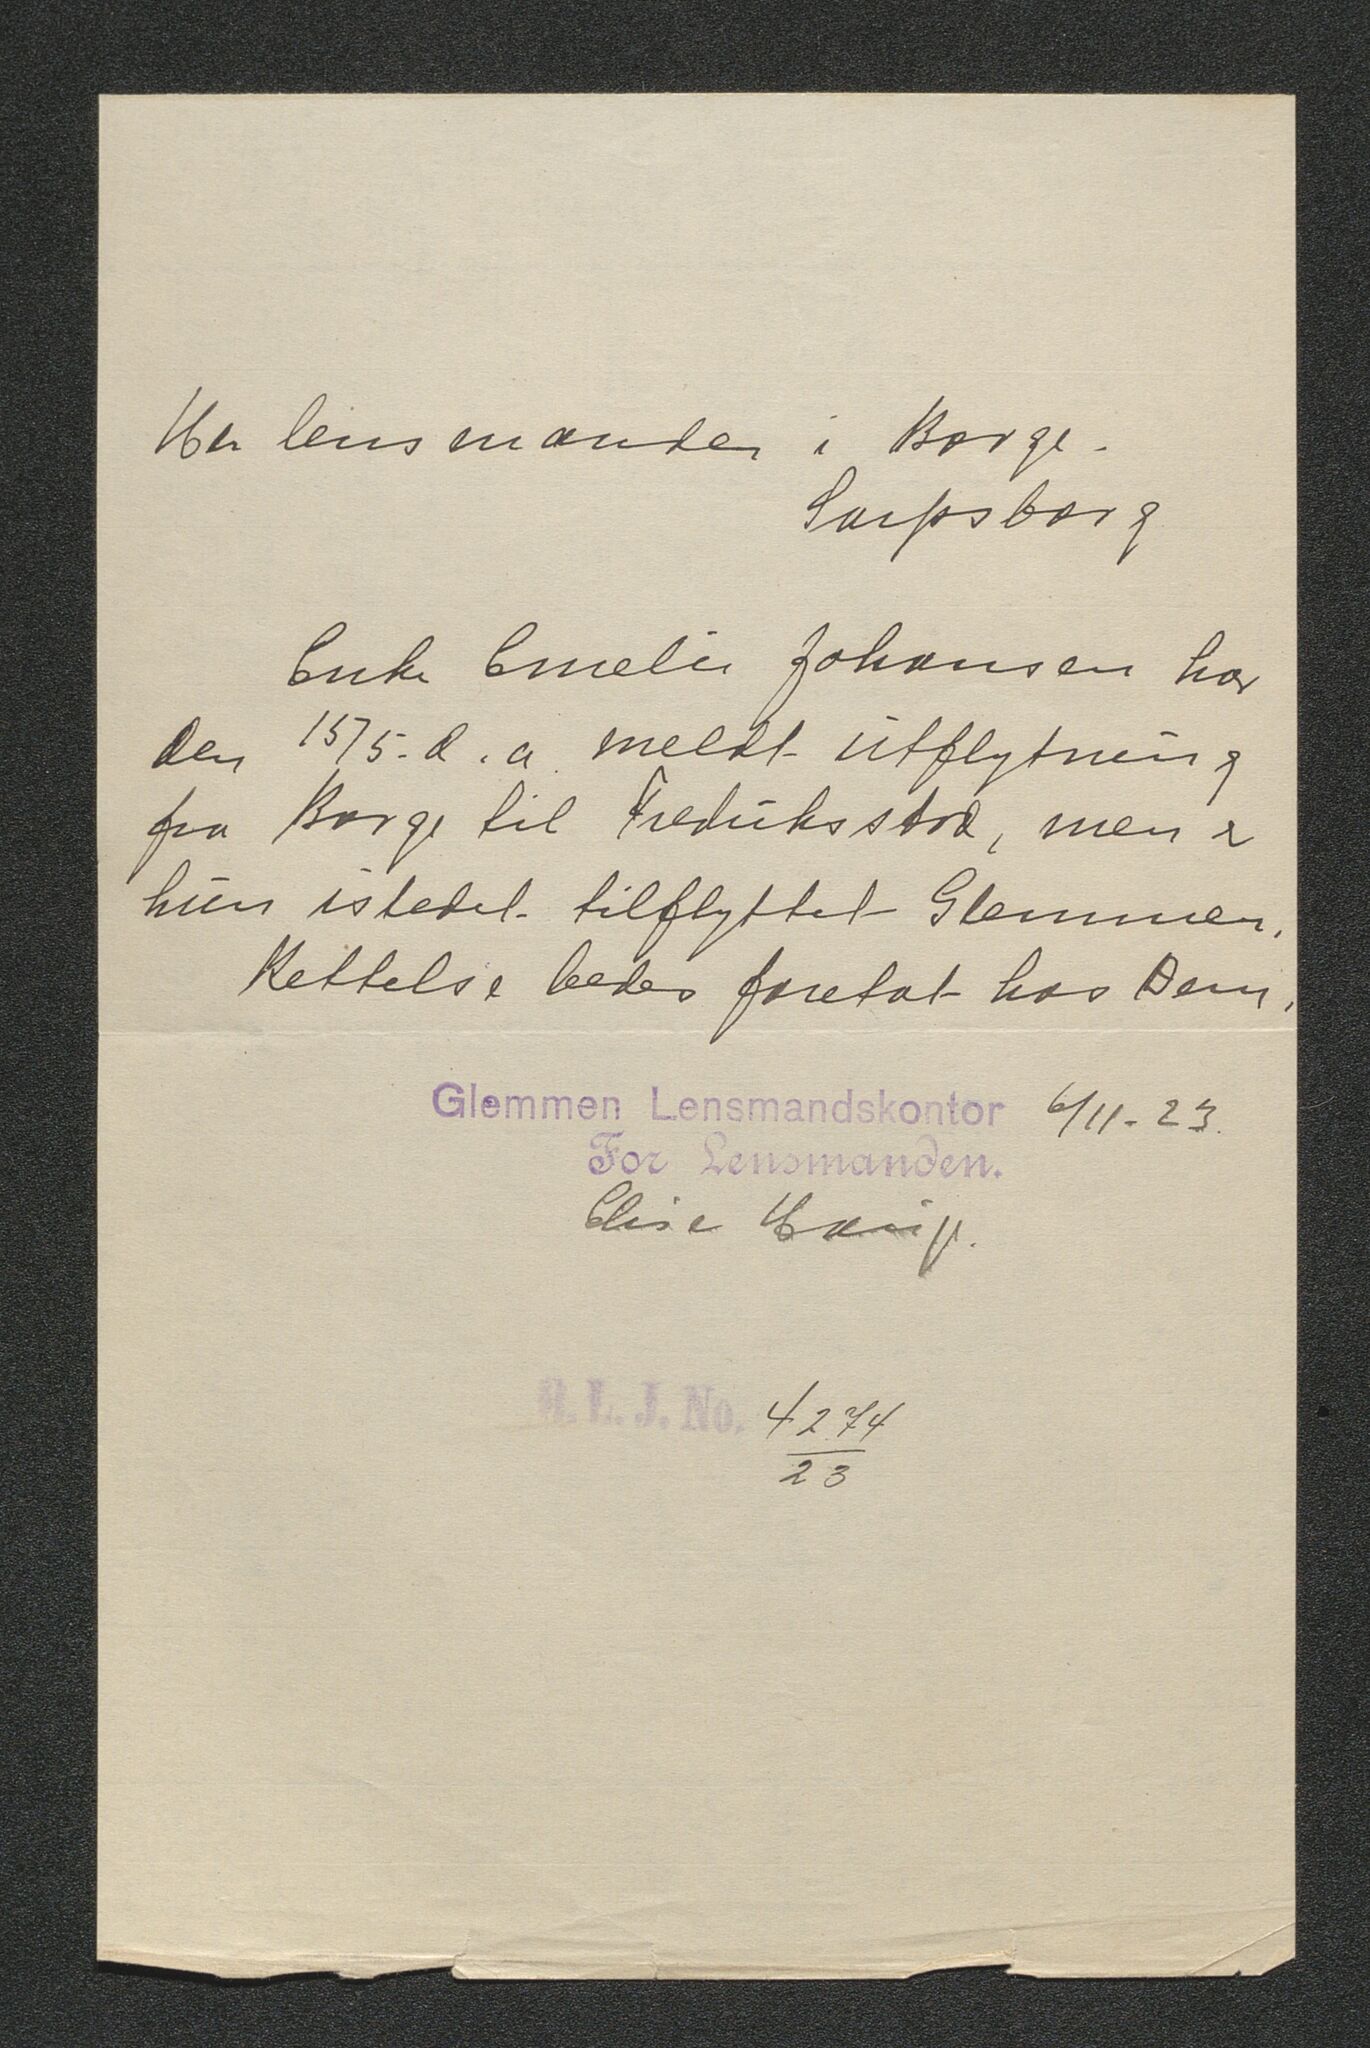 Hr lensmanden i Borge.
Sarpsborg
Enke Emelie Johansen har
den 15/5. d. a. meldt utflytning
fra Borge til Fredriksstad, men er
hun istedet tilflyttet Glemmen.
Rettelse bedes foretat hos Dem.
Glemmen Lensmandskontor 6/11-23.
For Lensmanden.
Elise
B. L. J. No. 4274
23